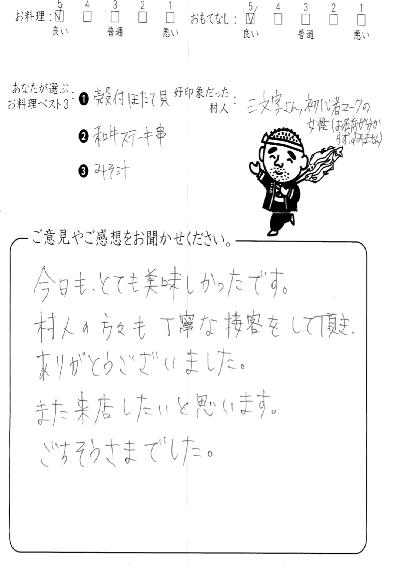 5 4 3 2 1 5 4 3 2 1
お料理: おもてなし:
良い 普通 悪い 良い 普通 悪い
あなたが選ぶ
お料理ベスト3:
❶ 殻付ほたて貝
❷ 和牛ステーキ串
❸ みそ汁
好印象だった
村人:
三文字さん、初心者マークの
女性(お名前が分か
りず、すみません)
ご意見やご感想をお聞かせください。
今日も、とても美味しかったです。
村人の方々も丁寧な接客をして頂き、
ありがとうございました。
また来店したいと思います。
ごちそうさまでした。